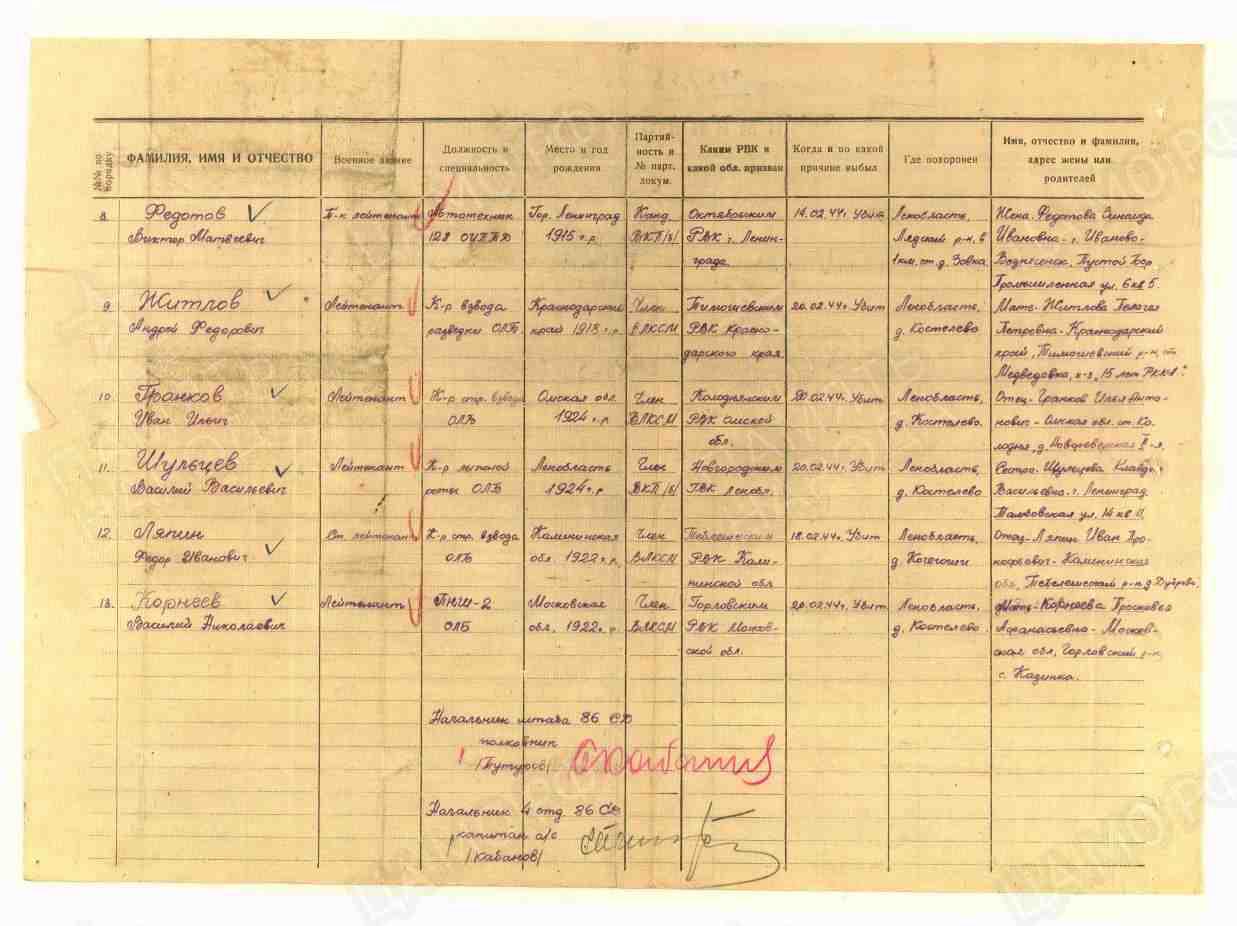 №№ по порядку
ФАМИЛИЯ, ИМЯ И ОТЧЕСТВО
Военное звание
Должность и специальность
Место и год рождения
Партий-
ность и
№ парт.
докум.
Каким РВК и какой обл. призван
Когда и по какой причине выбыл
Где похоронен
Имя, отчество и фамилия,
адрес жены или
родителей
8. Федотов Т-к лейтенант Автотехник Гор. Ленинград Канд. Октябрьским 14.02.44г. Убит Ленобласть, Жена-Федотова Зинаида
Виктор Матвеевич 128 1915 г.р. ВКП/б/ РВК г. Ленин- Лядский р-н, в Ивановна-г. Иваново-
града. 1 км, ст. д. Зовка Вознесенск,
Промышленная ул. 6 кв 5.
9. Житлов Лейтенант К-р взвода Краснодарский Член 20.02.44г. Убит Ленобласть, Мать-Житлова Пелагея
Андрей Федорович разведки ОЛБ край 1918 г.р. ВЛКСМ РВК Красно- д. Костелево Петровна-Краснодарский
дарского края край, р-н, ст.
Медведовка, к-з "15 лет РККА".
10. Гранков Лейтенант К-р стр. взвода Омская обл. Член 20.02.44г. Убит Ленобласть, Отец-Гранков Илья Анто-
Иван Ильич ОЛБ 1924 г.р. ВЛКСМ РВК Омской д. Костелево. нович-Омская обл. ст. Ко-
обл.
11. Шульцев Лейтенант К-р лыжной Ленобласть Член Новгородским 20.02.44г. Убит Ленобласть, Сестра-Шульцева Клавдия
Василий Васильевич роты ОЛБ 1924 г.р. ВКП/б/ РВК Ленобл. д. Костелево Васильевна-г. Ленинград
Тамбовская ул. 14 кв
12. Ляпин Ст. лейтенант К-р стр. взвода Калининская Член 18.02.44г. Убит Ленобласть, Отец-Ляпин Иван Про-
Федор Иванович ОЛБ обл. 1922 г.р. ВЛКСМ РВК Кали- д. кофьевич-Калининская
нинской обл обл, р-н д.
13. Корнеев Лейтенант ПНШ-2 Московская Член Горловским 20.02.44г. Убит Ленобласть, Мать-Корнеева Просковья
Василий Николаевич ОЛБ обл. 1922 г.р. ВЛКСМ РВК Москов- д. Костелево. Афанасьевна-Москов-
ской обл. ская обл, Горловский р-н
с. Казинка.
Начальник штаба 86 СД
полковник
/Путуров/
Начальник 4 отд 86 СД
капитан а/с
/Кабанов/
ЦАМО.РФ